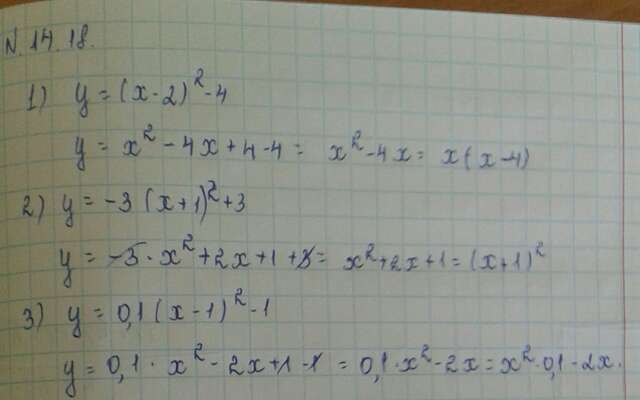 N. 14. 18.
1) y = (x - 2)² - 4
y = x² - 4x + 4 - 4 = x² - 4x = x(x - 4)
2) y = -3 (x + 1)² + 3
y = -3 · x² + 2x + 1 + 3 = x² + 2x + 1 = (x + 1)²
3) y = 0,1 (x - 1)² - 1
y = 0,1 · x² - 2x + 1 - 1 = 0,1 · x² - 2x = x² · 0,1 - 2x.